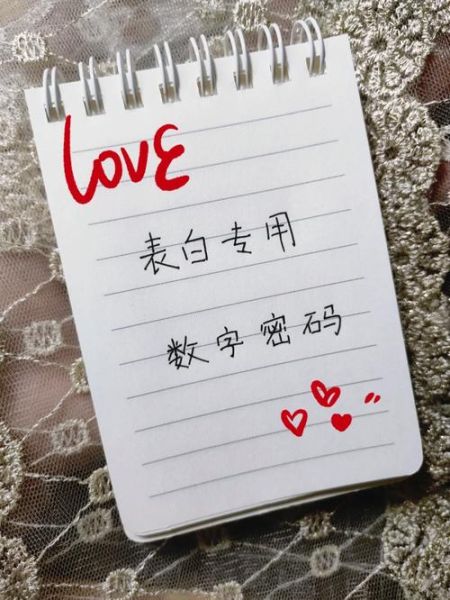 LOVE
表白专用
数字密码